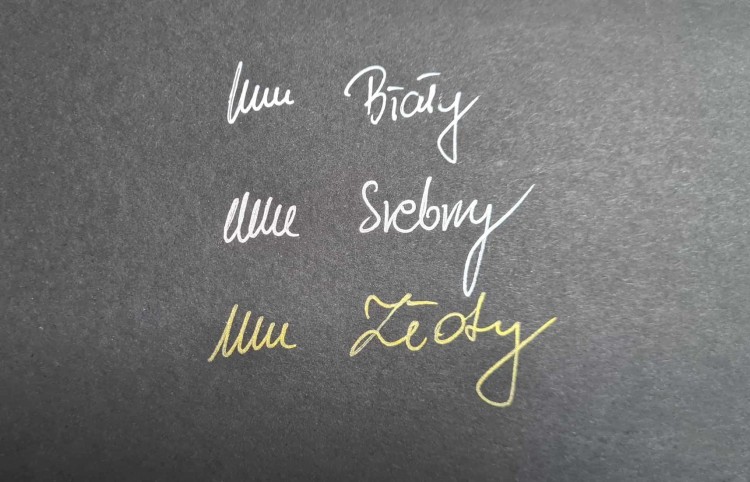 Biały
Srebrny
Złoty